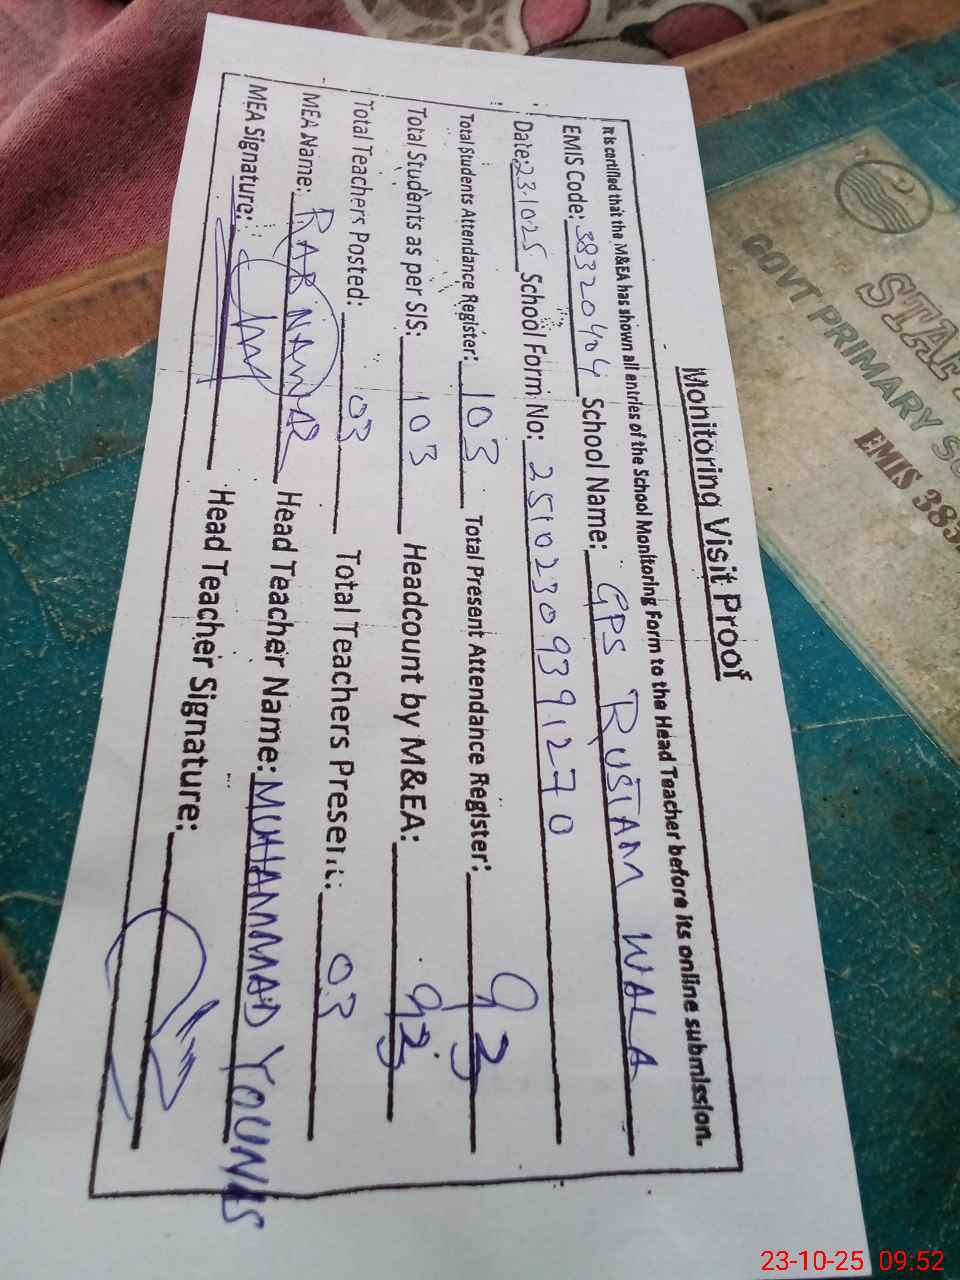 Monitoring Visit Proof
It is certified that the M&EA has shown all entries of the School Monitoring Form to the Head Teacher before its online submission.
EMIS Code: 38320404 School Name: GPS RUSTAM WALA
Date: 23.10.25 School Form No: 25102309391270
Total Students Attendance Register: 103 Total Present Attendance Register: 93
Total Students as per SIS: 103 Headcount by M&EA: 93
Total Teachers Posted: 03 Total Teachers Present: 03
MEA Name: Head Teacher Name: MUHAMMAD YOUNIS
MEA Signature: Head Teacher Signature:
GOVT PRIMARY
EMIS 383
23-10-25 09:52